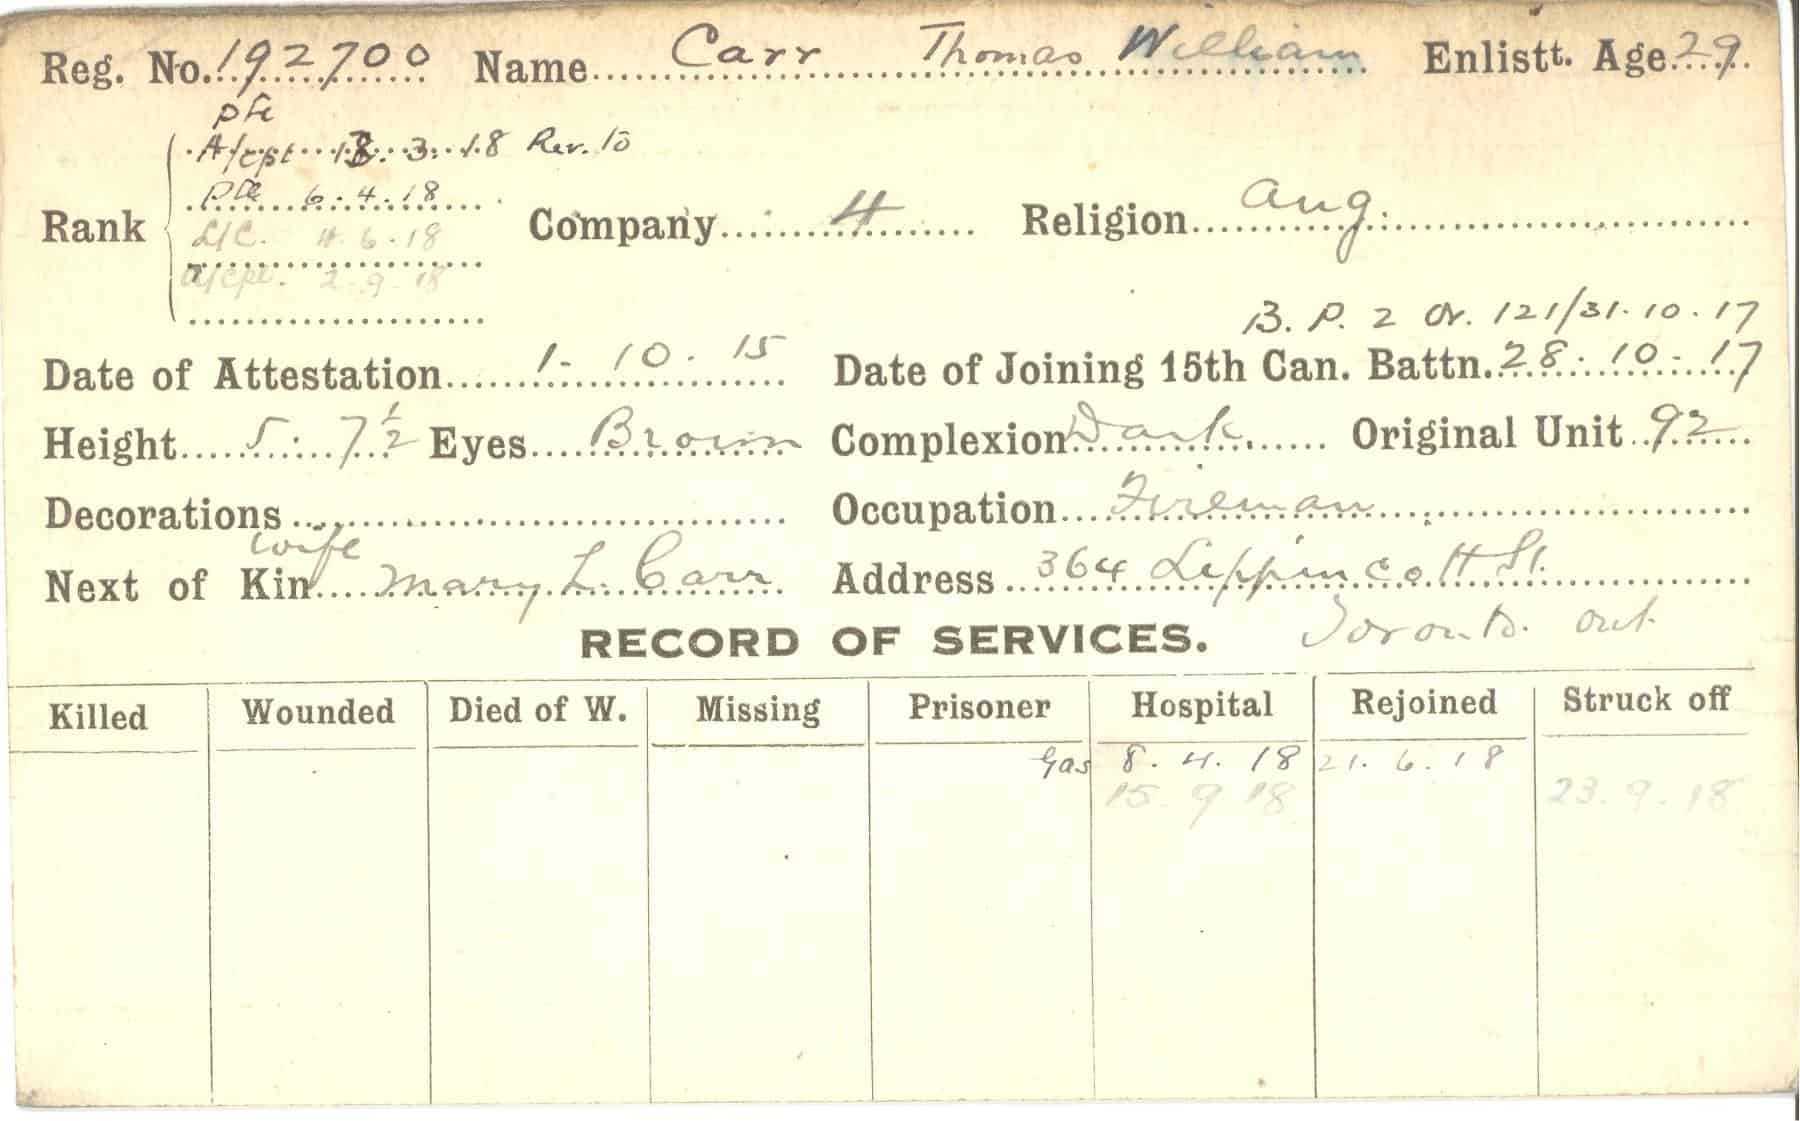 Reg. No. 192700 Name Carr Thomas William Enlistt. Age 29
Pte
A/Cpl 18. 3. 18 Rev. to
Pte 6. 4. 18
Rank Company 4 Religion Ang.
L/C. 4. 6. 18
a/Cpl. 2. 9. 18
B. P. 2 Or. 121/31. 10. 17
Date of Attestation 1- 10. 15 Date of Joining 15th Can. Battn. 28. 10. 17
Height 5. 7 1/2 Eyes Brown Complexion Dark. Original Unit 92
Decorations Occupation Fireman
wife
Next of Kin Mary L. Carr Address 364 Lippincott St.
Toronto. Ont.
RECORD OF SERVICES.
Killed Wounded Died of W. Missing Prisoner Hospital Rejoined Struck off
Gas 8. 4. 18 21. 6. 18
15. 9 18 23. 9. 18